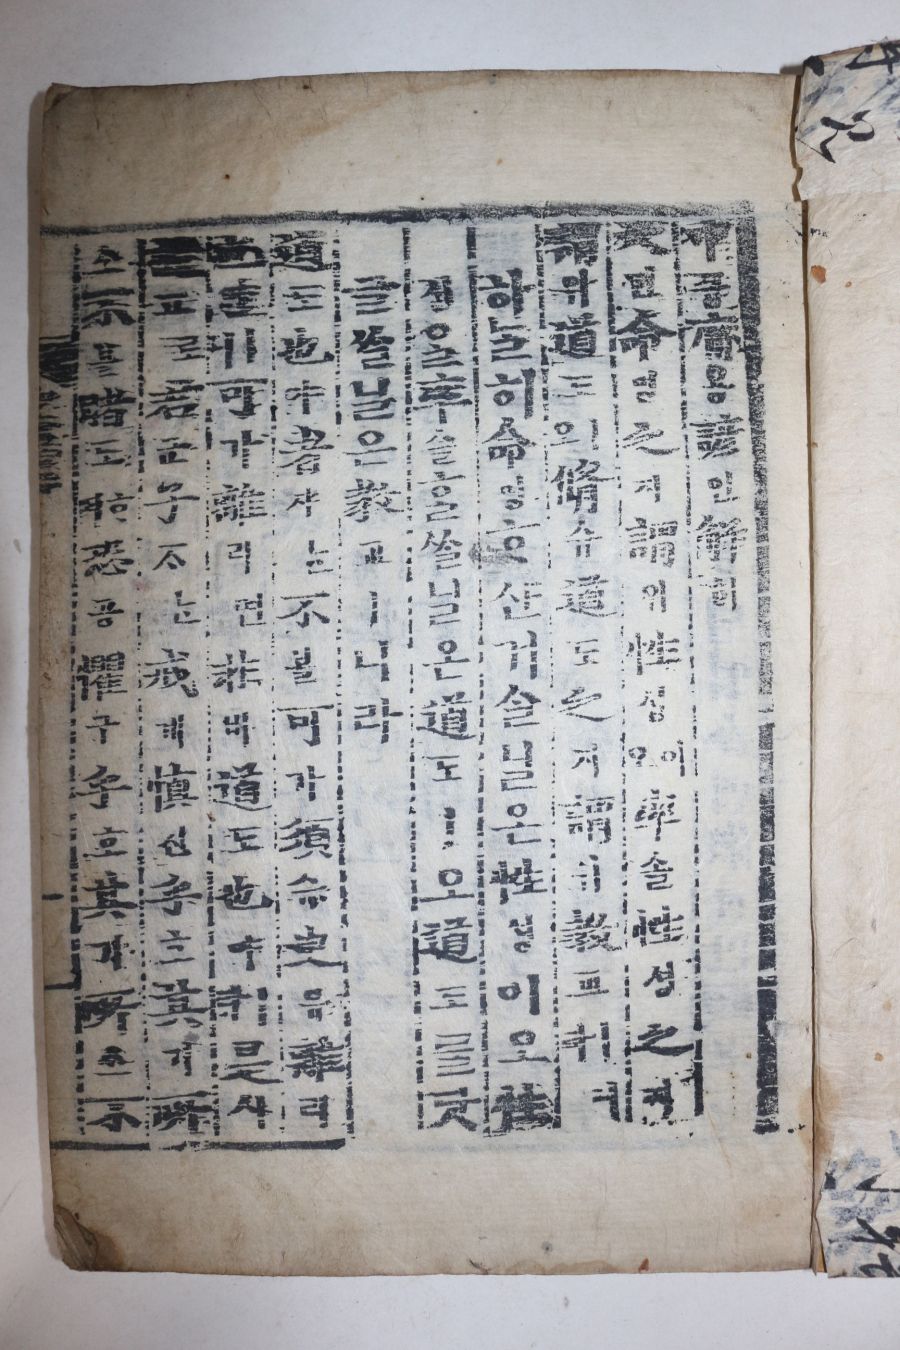 中듕庸용諺언解ᄒᆡ
天텬命명之지謂위性셩이오率솔性셩之지
謂위道도ㅣ오脩슈道도之지謂위敎교ㅣ니라
하ᄂᆞᆯ히命명ᄒᆞ샨거슬닐온性셩이오性
셩을率솔ᄒᆞᆯᄊᆞᆯ닐온道도ㅣ오道도ᄅᆞᆯ닷
글ᄊᆞᆯ닐온敎교ㅣ니라
道도也야者쟈ᄂᆞᆫ不블可가須슈臾유離리
也ㅣ니可가離리면非비道도也야ㅣ라是시
故고로君군子ᄌᆞᄂᆞᆫ戒계愼신乎호其기所
소不블睹도ᄒᆞ며恐공懼구乎호其기所소不